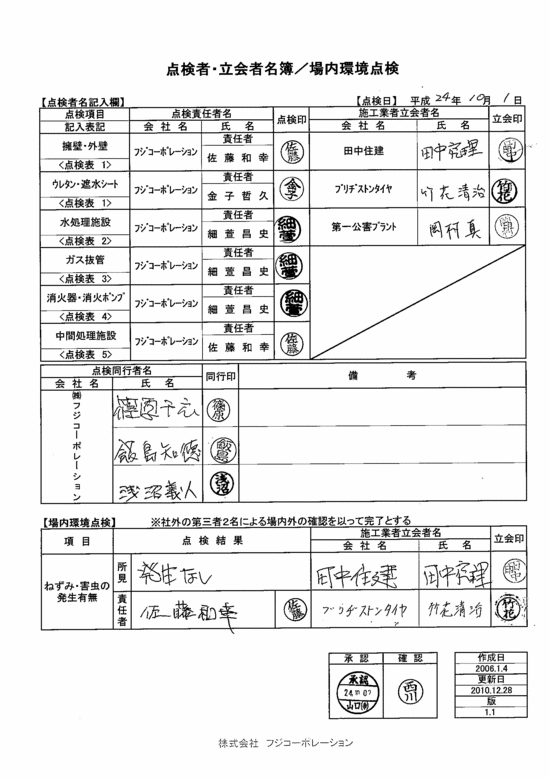 点検者・立会者名簿／場内環境点検
【点検者名記入欄】 【点検日】 平成 24年 10月 1日
点検項目 点検責任者名 点検印 施工業者立会者名 立会印
記入表記 会社名 氏名 会社名 氏名
擁壁・外壁 フジコーポレーション 責任者 佐藤 田中住建 田中完理 田中
<点検表 1> 佐藤和幸
ウレタン・遮水シート フジコーポレーション 責任者 金子 ブリヂストンタイヤ 竹花清治 竹花
<点検表 1> 金子哲久
水処理施設 フジコーポレーション 責任者 細萱 第一公害プラント 岡村真
<点検表 2> 細萱昌史
ガス抜管 フジコーポレーション 責任者 細萱
<点検表 3> 細萱昌史
消火器・消火ポンプ フジコーポレーション 責任者 細萱
<点検表 4> 細萱昌史
中間処理施設 フジコーポレーション 責任者 佐藤
<点検表 5> 佐藤和幸
点検同行者名 同行印 備考
会社名 氏名
㈱フジコーポレーション
篠原千宏 篠原
飯島知徳 飯島
浅沼義人 浅沼
【場内環境点検】 ※社外の第三者2名による場内外の確認を以って完了とする
項目 点検結果 施工業者立会者名 立会印
会社名 氏名
ねずみ・害虫の発生有無 所見 発生なし 田中住建 田中完理 田中
責任者 佐藤和幸 佐藤 ブリヂストンタイヤ 竹花清治 竹花
承認 確認
承認 24.10.01 山口 西川
作成日
2006.1.4
更新日
2010.12.28
版
1.1
株式会社 フジコーポレーション